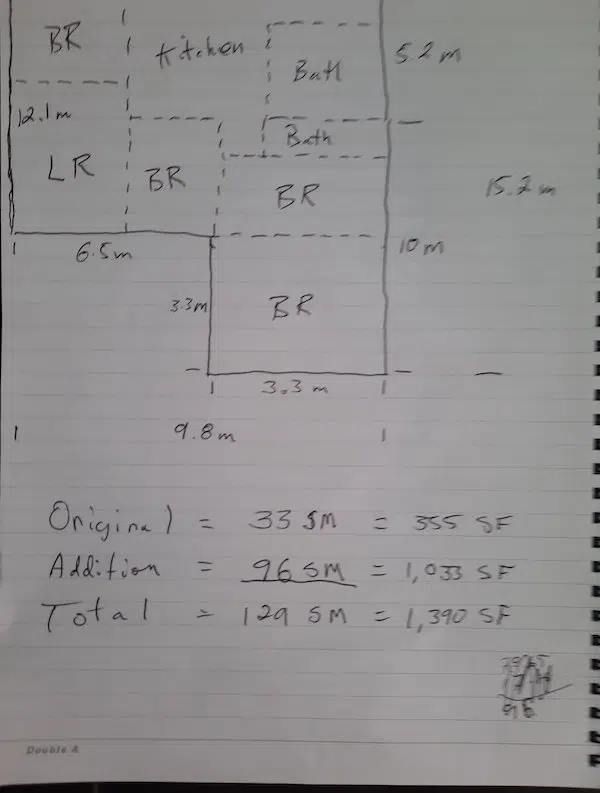 BR
Kitchen
Bath
5.2 m
12.1 m
Bath
LR
BR
BR
15.2 m
6.5 m
10 m
3.3 m
BR
3.3 m
9.8 m
Original = 33 SM = 355 SF
Addition = 96 SM = 1,033 SF
Total = 129 SM = 1,390 SF
96
Double A